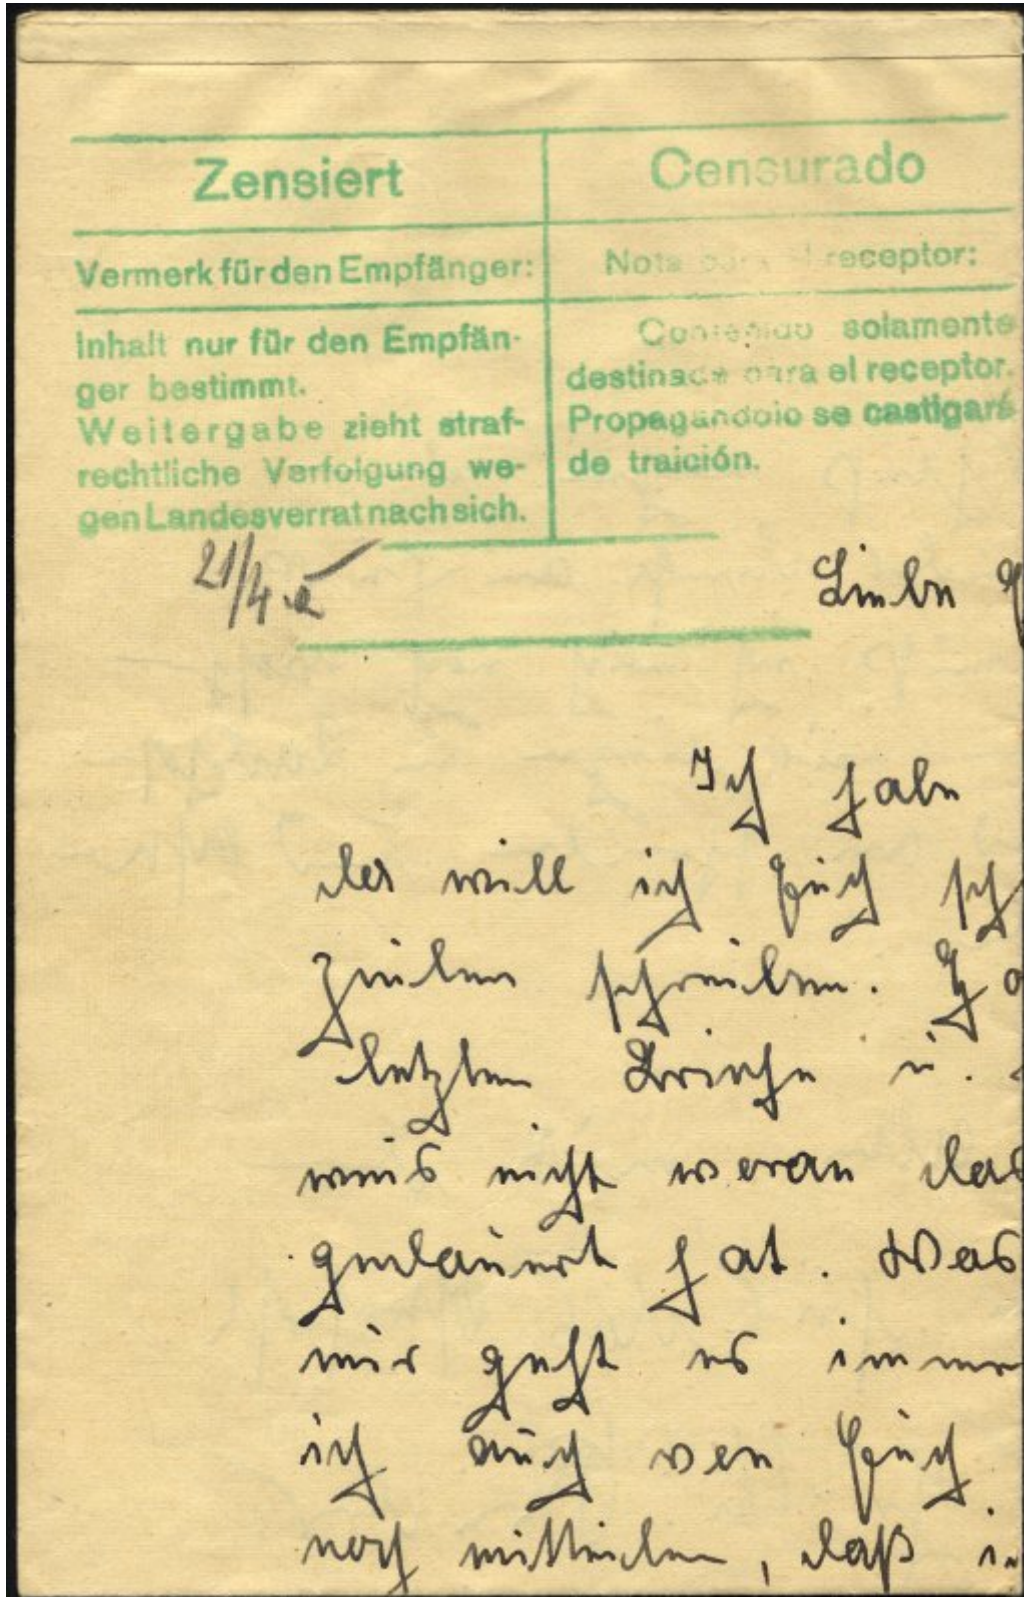 Zensiert
Vermerk für den Empfänger:
Inhalt nur für den Empfän-
ger bestimmt.
Weitergabe zieht straf-
rechtliche Verfolgung we-
gen Landesverrat nach sich.
Censurado
Nota para el receptor:
Contenido solamente
destinado para el receptor.
Propagandolo se castigará
de traición.
21/4.
Liebe
Ich habe
der will ich Euch
zeilen schreiben.
letzten Briefe u.
weis nicht woran das
gedauert hat. Was
mir geht es imme
ich auch von Euch
noch mitteilen, daß